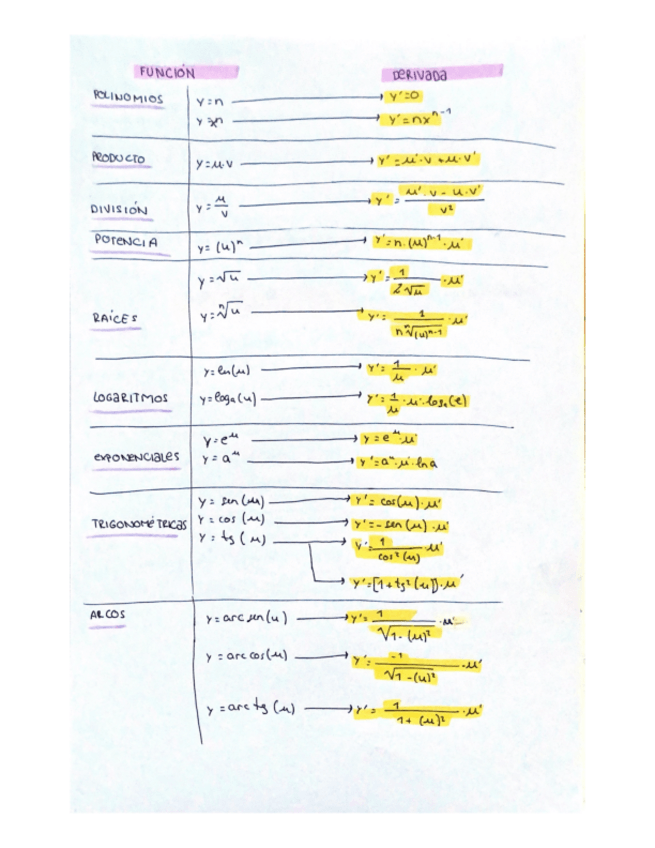 FUNCIÓN DERIVADA
POLINOMIOS y=n → y'=0
y=xⁿ → y'=nxⁿ⁻¹
PRODUCTO y=u·v → y'=u'·v+u·v'
DIVISIÓN y=u/v → y'=(u'·v-u·v')/v²
POTENCIA y=(u)ⁿ → y'=n·(u)ⁿ⁻¹·u'
RAÍCES y=√u → y'=1/(2√u)·u'
y=ⁿ√u → y'=1/(n ⁿ√(u)ⁿ⁻¹)·u'
y=ln(u) → y'=1/u·u'
LOGARITMOS y=logₐ(u) → y'=1/u·u'·logₐ(e)
EXPONENCIALES y=eᵘ → y=eᵘ·u'
y=aᵘ → y'=aᵘ·u'·ln a
TRIGONOMÉTRICAS y=sen(u) → y'=cos(u)·u'
y=cos(u) → y'=-sen(u)·u'
y=tg(u) → y'=1/cos²(u)·u'
→ y'=[1+tg²(u)]·u'
ARCOS y=arcsen(u) → y'=1/√1-(u)²·u'
y=arccos(u) → y'=-1/√1-(u)²·u'
y=arctg(u) → y'=1/(1+(u)²)·u'